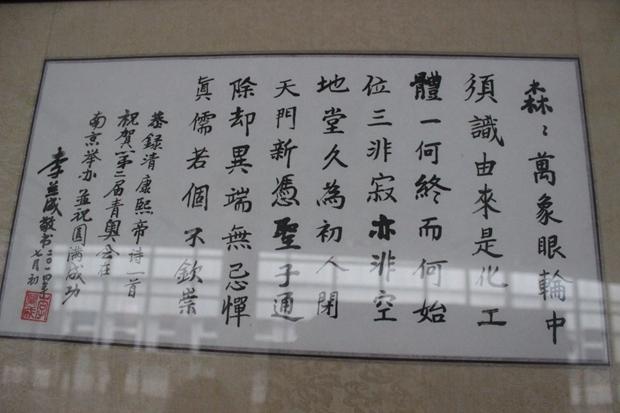 森〻萬象眼輪中
須識由來是化工
體一何終而何始
位三非寂亦非空
地堂久為初人閉
天門新憑聖子通
除却異端無忌憚
眞儒若個不欽崇
恭録清康熙帝诗一首
祝賀第二届青奥会在
南京举办並祝圆满成功
李成敬书二〇一四年
七月初